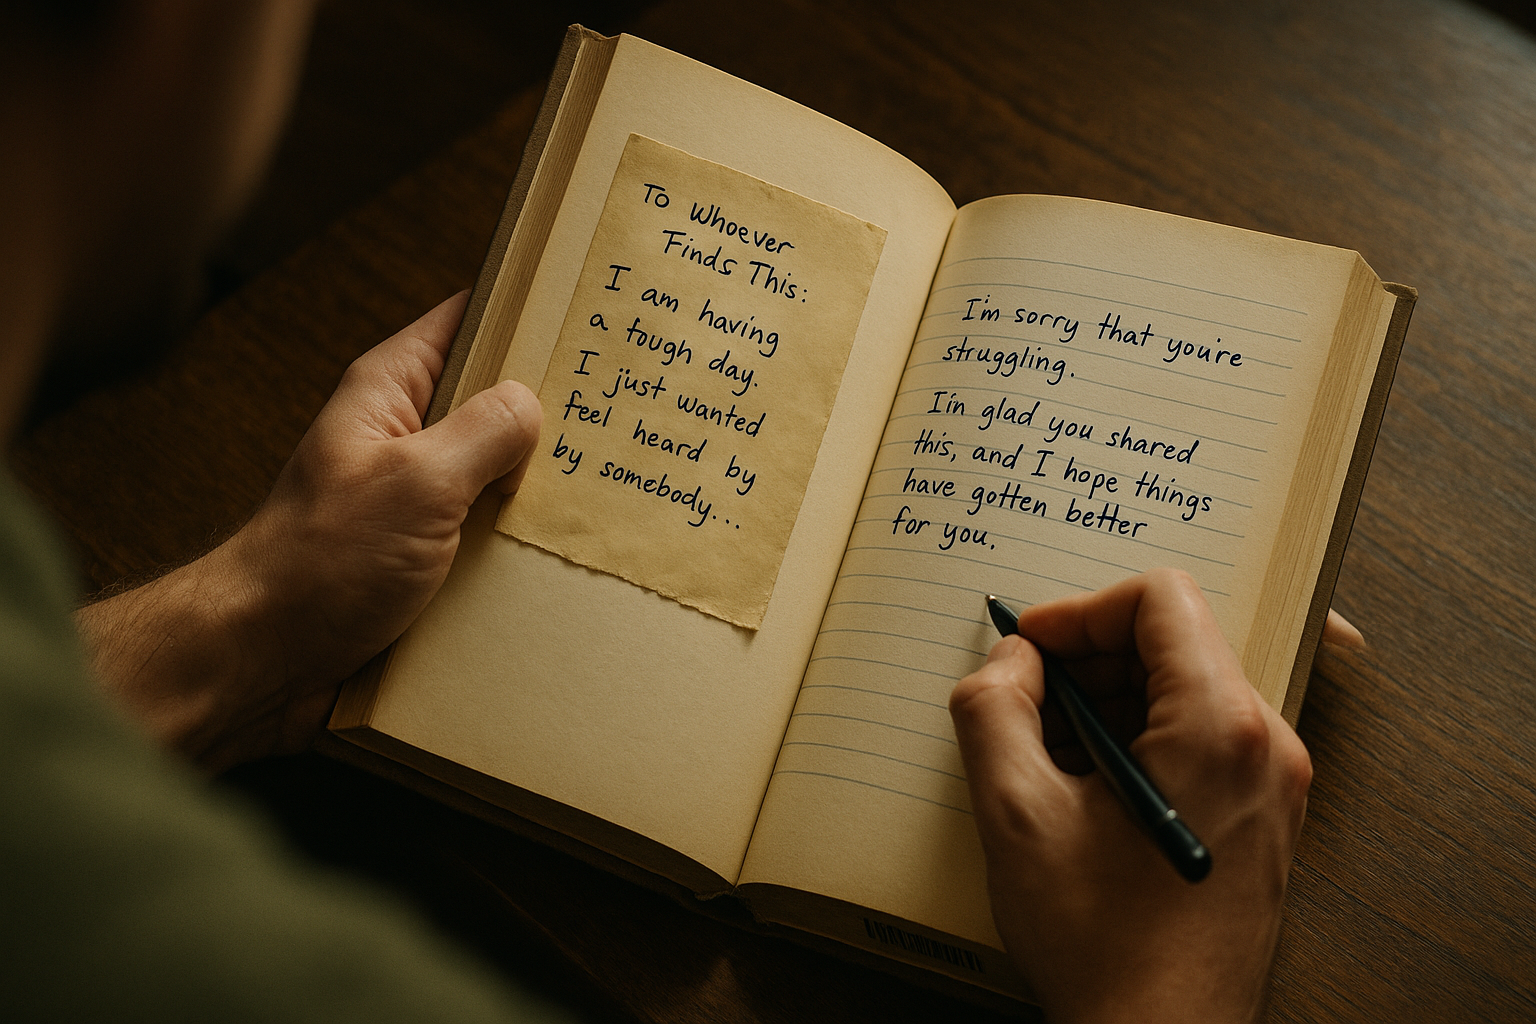 To Whoever
Finds This:
I am having
a tough day.
I just wanted
feel heard by
by somebody...
I'm sorry that you're
struggling.
I'm glad you shared
this, and I hope things
have gotten better
for you.